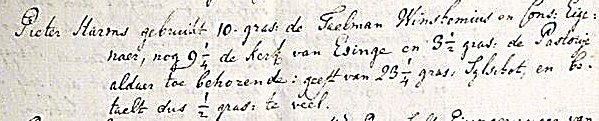 Pieter Harms gebruikt 10. gras: de Taelman Winshemius en Cons: Eige-
naer, nog 9 1/4 de Kerk van Esinge en 3 1/2 gras: de Pastorije
aldaer toe behorende: geeft van 23 1/4 gras: Sylschot, en be-
taelt dus 1/2 gras: te veel.